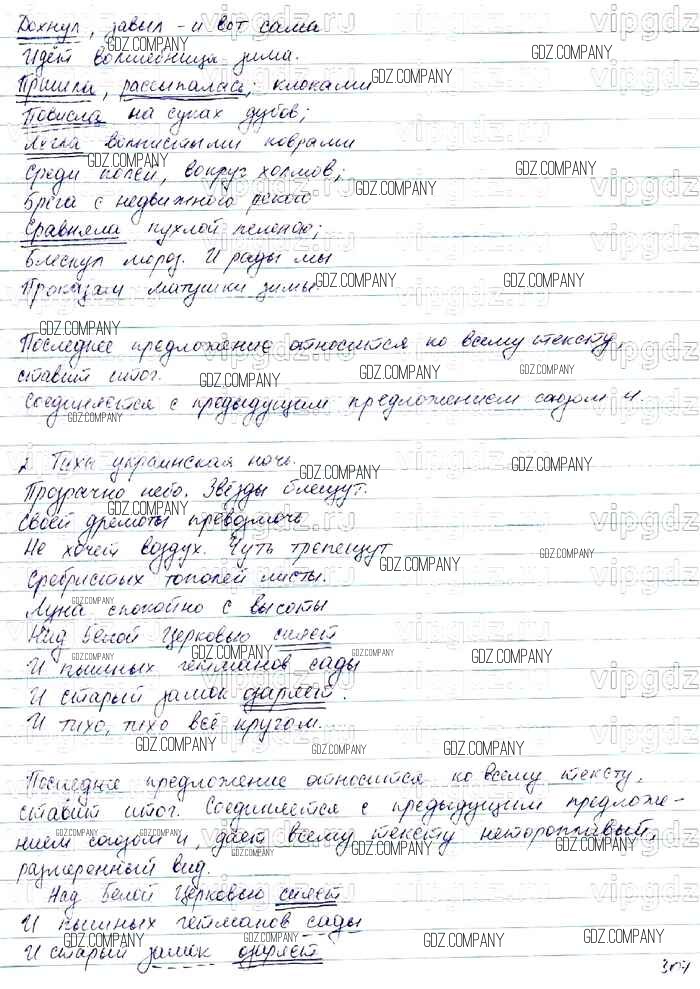 Дохнул, завыл - и вот сама
Идёт волшебница зима.
Пришла, рассыпалась; клоками
Повисла на суках дубов;
Легла волнистыми коврами
Среди полей, вокруг холмов;
Брега с недвижного рекою
Сравняла пухлой пеленою;
Блеснул мороз. И рады мы
Проказам матушки зимы
Последнее предложение относится ко всему тексту,
ставит итог.
Соединяется с предыдущим предложением союзом и
2. Тиха украинская ночь.
Прозрачно небо. Звёзды блещут.
Своей дремоты превозмочь
Не хочет воздух. Чуть трепещут
Сребристых тополей листы.
Луна спокойно с высоты
Над Белой Церковью сияет
И пышных гетманов сады
И старый замок озаряет.
И тихо, тихо всё кругом.
Последнее предложение относится ко всему тексту,
ставит итог. Соединяется с предыдущим предложе-
нием союзом и, даёт всему тексту неторопливый,
размеренный вид.
Над Белой Церковью сияет
И пышных гетманов сады
И старый замок озаряет
GDZ.COMPANY
vipgdz.ru